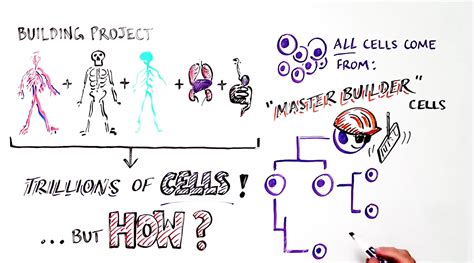 BUILDING PROJECT
+ + + +
TRILLIONS OF CELLS!
... BUT HOW?
ALL CELLS COME
FROM:
"MASTER BUILDER"
CELLS